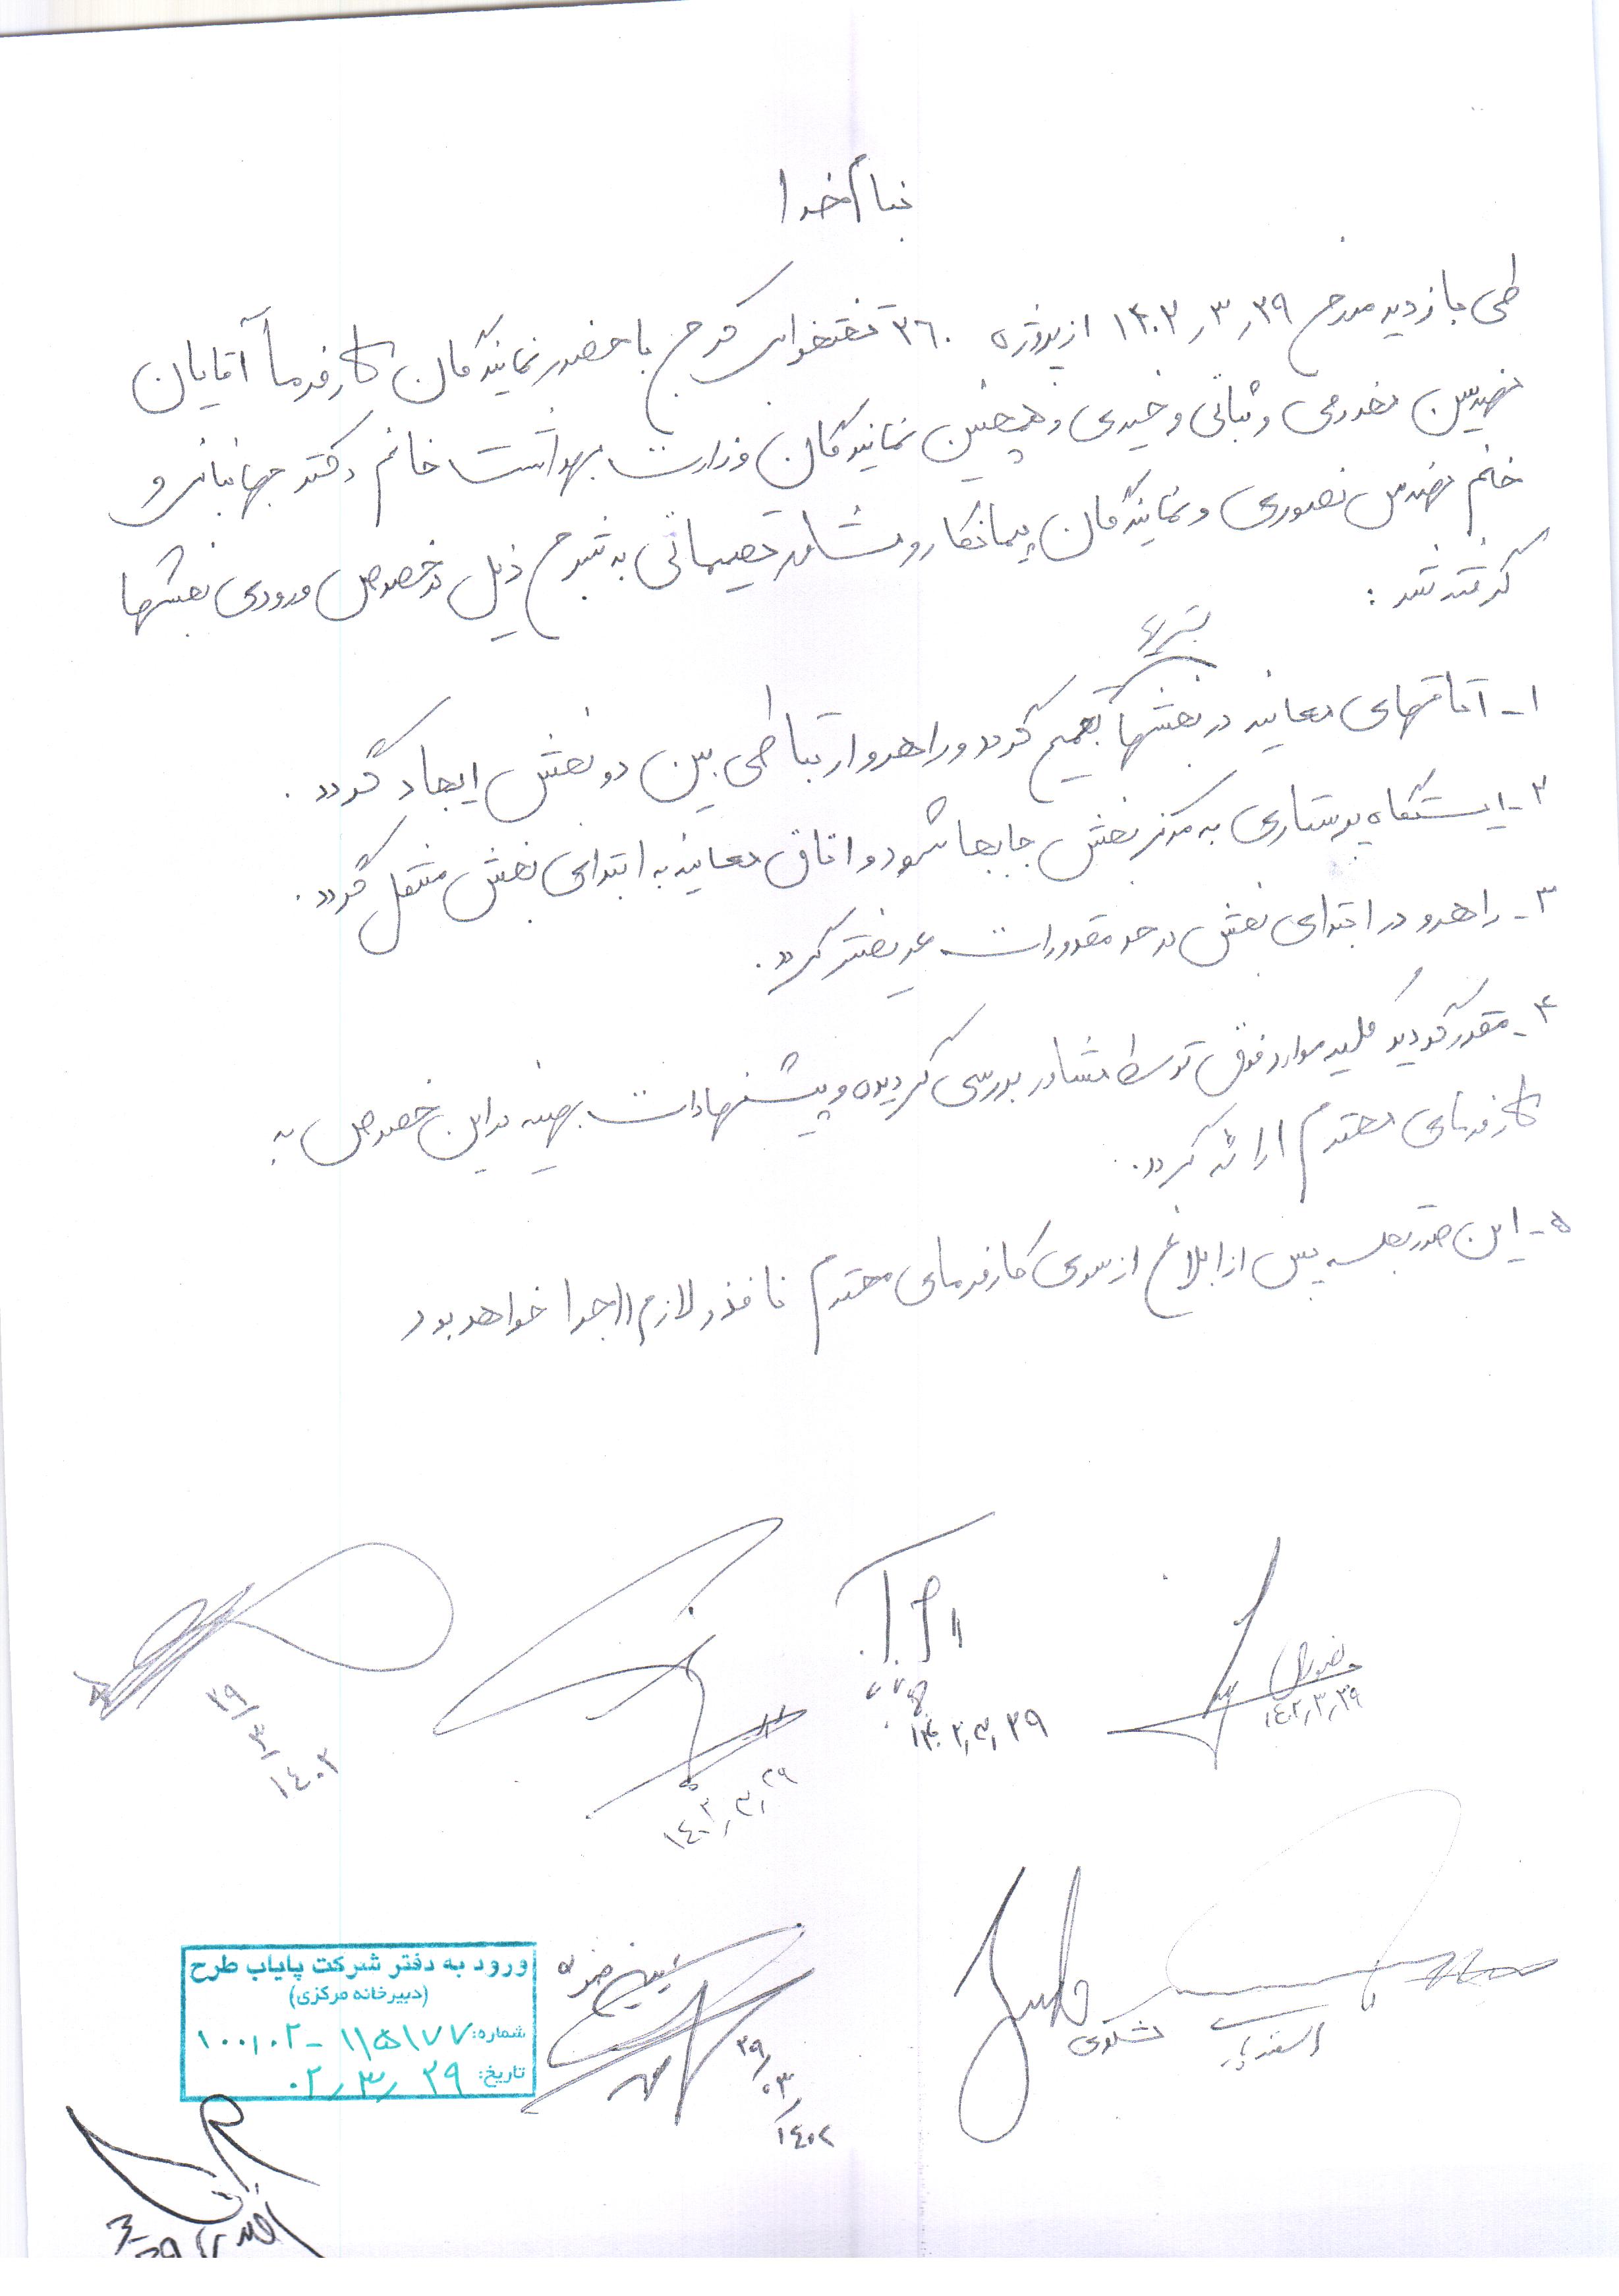 بنام خدا
طی بازدید مورخ ۱۴۰۲٫۳٫۲۹ از پروژه ۳۶۰ تختخوابی کرج با حضور نمایندگان کارفرما آقایان
مهندسین مخدومی و ثباتی و حیدری و همچنین نمایندگان وزارت بهداشت خانم دکتر جهانبانی و
خانم مهندس منصوری و نمایندگان پیمانکار و مشاور تصمیماتی به شرح ذیل در خصوص ورودی بخشها
گرفته شد :
بستری
۱- اتاقهای معاینه در بخشها تجمیع گردد و راهرو ارتباطی بین دو بخش ایجاد گردد .
۲- ایستگاه پرستاری به مرکز بخش جابجا شود و اتاق معاینه به ابتدای بخش منتقل گردد .
۳- راهرو در ابتدای بخش در حد مقدورات عریضتر گردد .
۴- مقرر گردید کلیه موارد فوق توسط مشاور بررسی گردیده و پیشنهادات بهینه در این خصوص به
کارفرمای محترم ارائه گردد .
۵- این صورتجلسه پس از ابلاغ از سوی کارفرمای محترم نافذ و لازم الاجرا خواهد بود
منصوری
۱۴۰۲٫۳٫۲۹
۱۴۰۲٫۳٫۲۹
۱۴۰۲٫۳٫۲۹
۱۴۰۲/۳/۲۹
۱۴۰۲/۰۳/۲۹
ورود به دفتر شرکت پایاب طرح
(دبیرخانه مرکزی)
شماره: ۱۰۰٫۰۲-۱۱۵۱۷۷
تاریخ: ۰۲٫۳٫۲۹